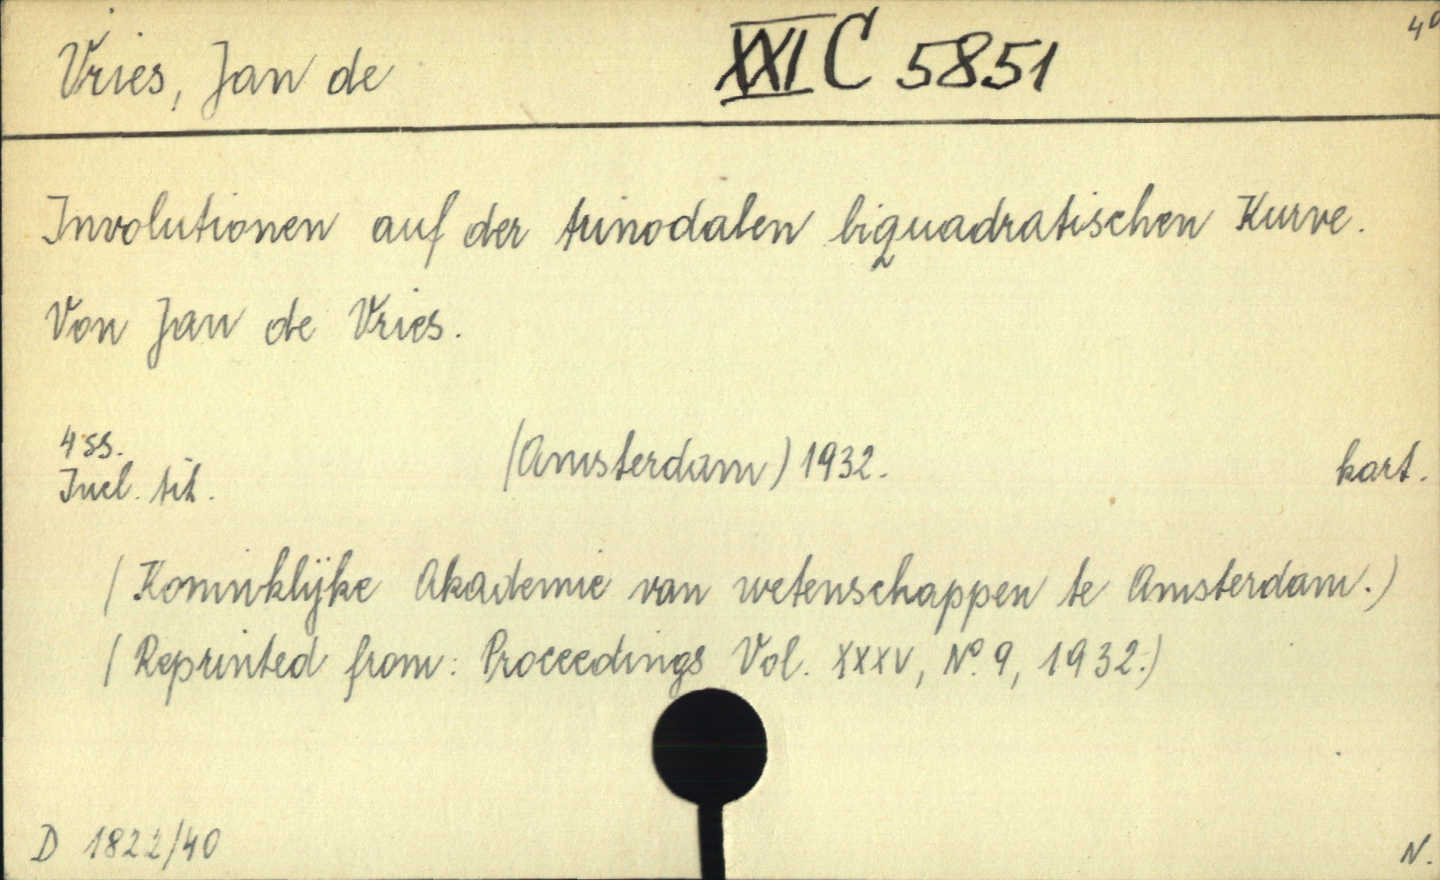 Vries, Jan de XXI C 5851 4°
Involutionen auf der trinodalen biquadratischen Kurve.
Von Jan de Vries.
4 ss.
Incl. tit. (Amsterdam) 1932. kart.
(Koninklijke Akademie van wetenschappen te Amsterdam.)
(Reprinted from: Proceedings Vol. XXXV, No. 9, 1932.)
D 1822/40 N.